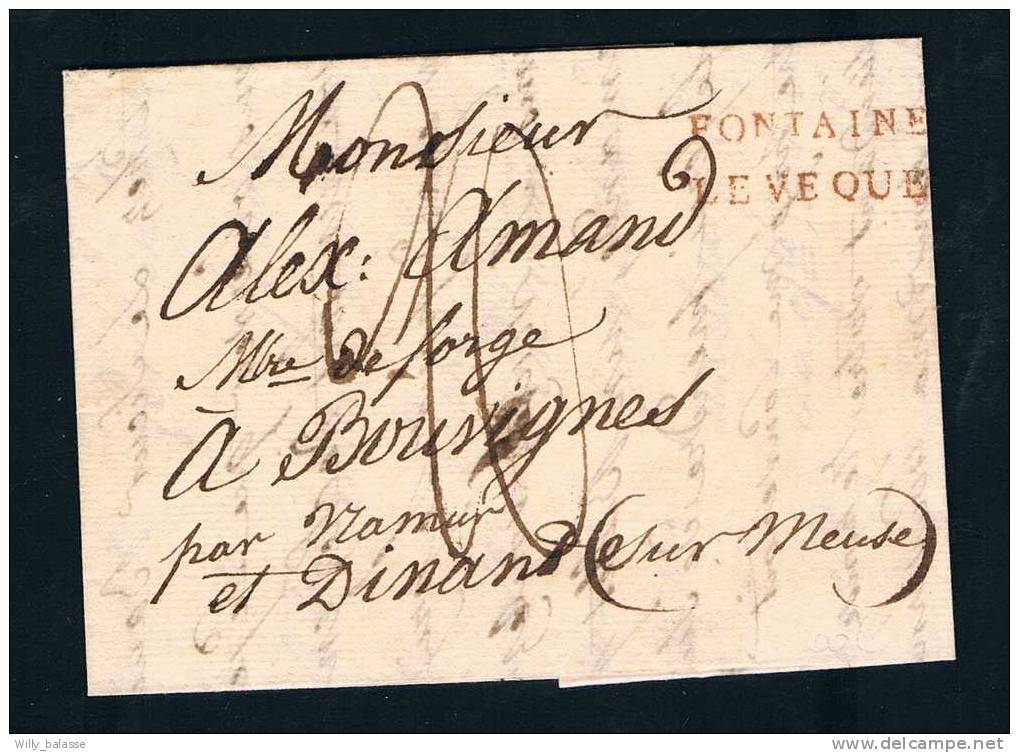 Monsieur
FONTAINE
LEVEQUE
Alex: Amand
Mtre de forge
à Bouvignes
par Namur
et Dinand (sur Meuse)
Willy_balasse
delcampe.net